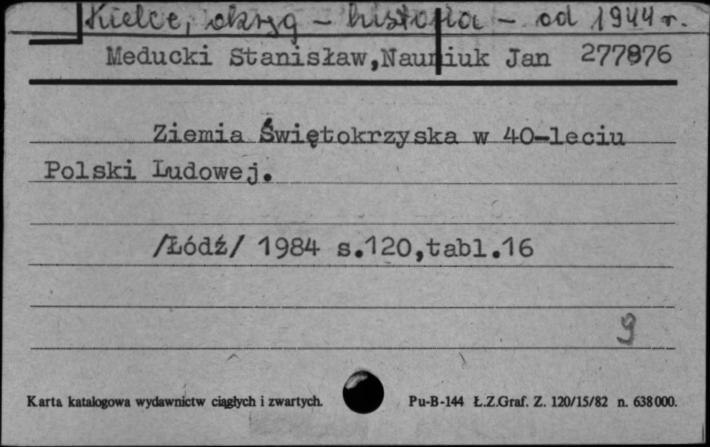 Kielce, okręg - historia - od 1944 r.
Meducki Stanisław,Naumiuk Jan 277876
Ziemia Świętokrzyska w 40-leciu
Polski Ludowej.
/Łódź/ 1984 s.120,tabl.16
9
Karta katalogowa wydawnictw ciągłych i zwartych. Pu-B-144 Ł.Z.Graf. Z. 120/15/82 n. 638000.